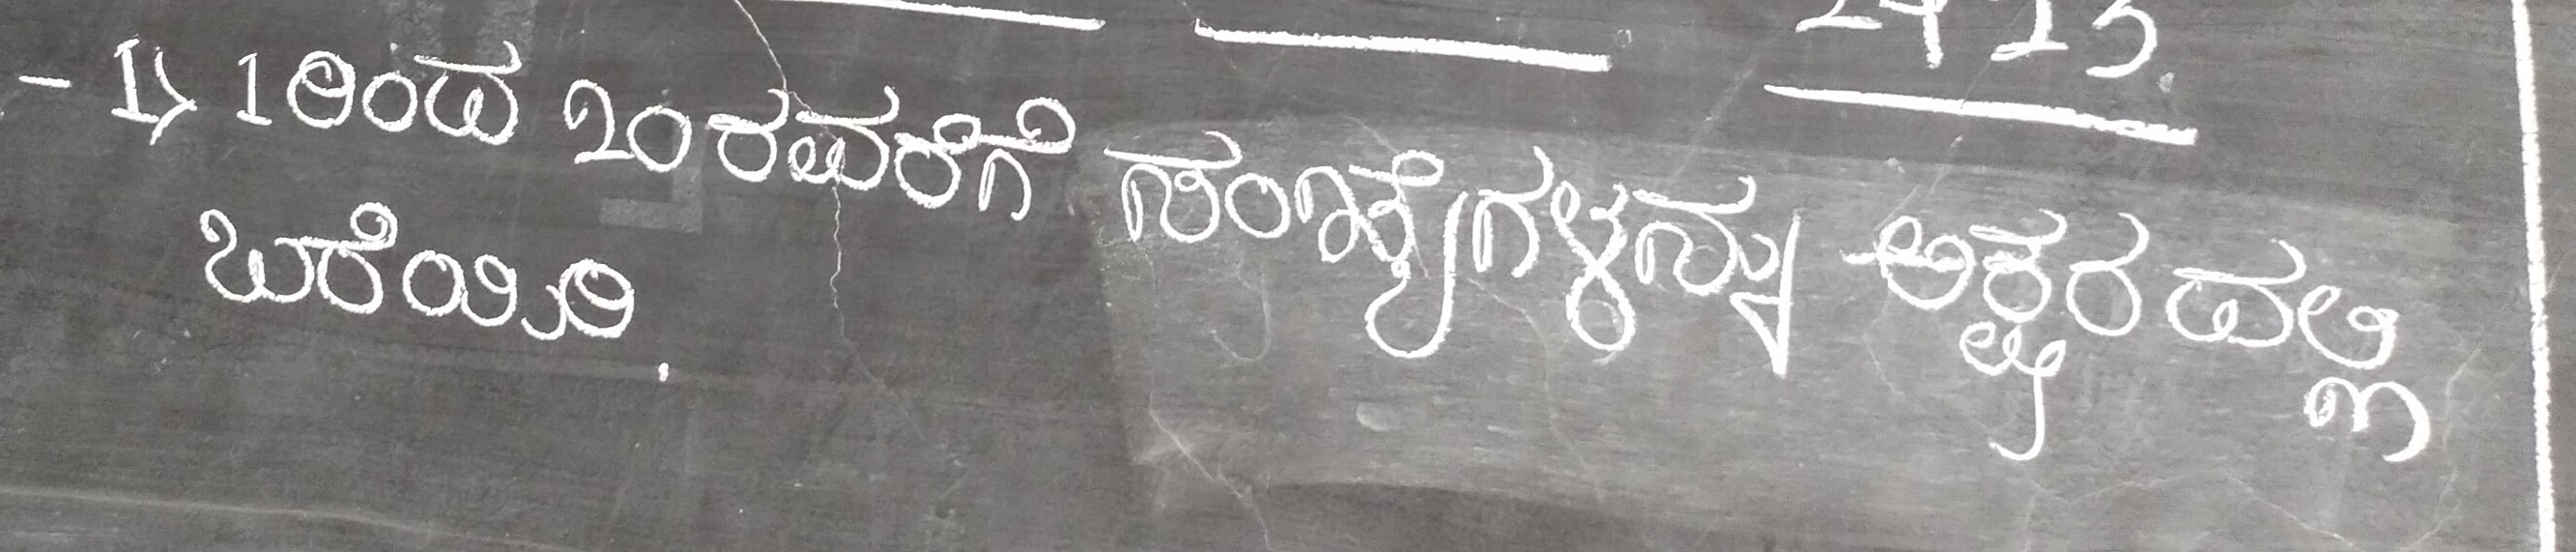 - 1) 1ರಿಂದ 20ರವರೆಗೆ ಸಂಖ್ಯೆಗಳನ್ನು ಅಕ್ಷರದಲ್ಲಿ
ಬರೆಯಿರಿ.